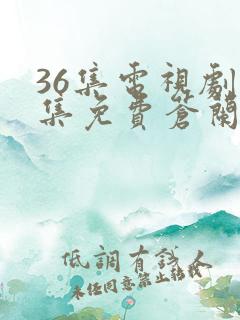 36集电視劇
集免費蒼闌
低調有錢人
未任同意禁止轉載